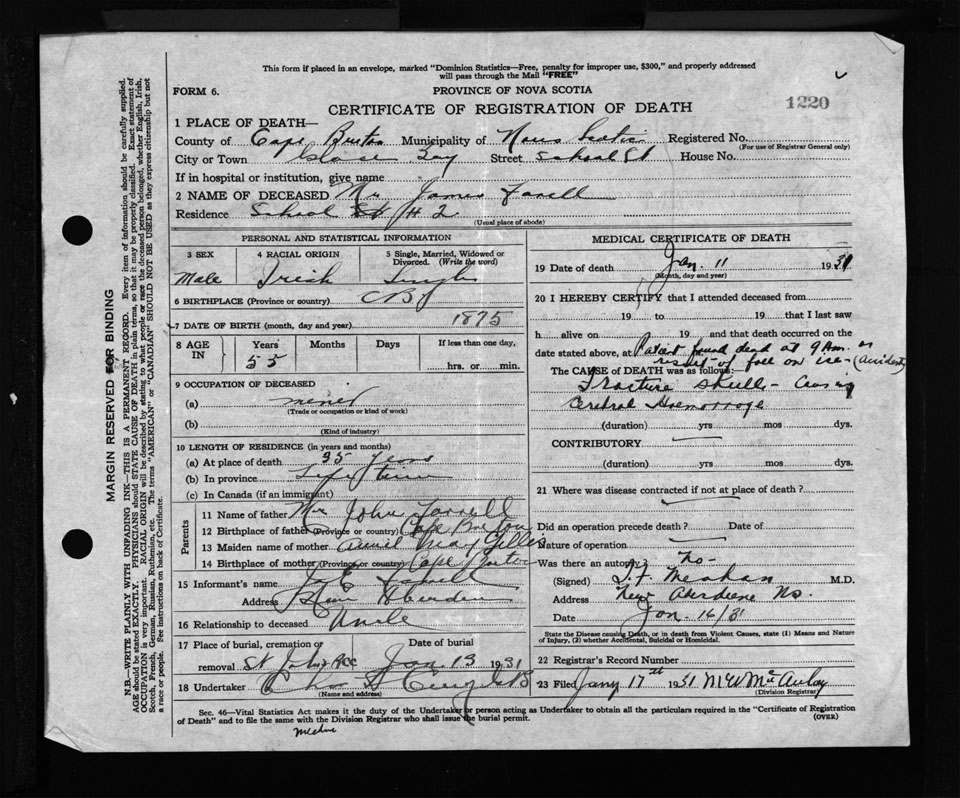 This form if placed in an envelope, marked "Dominion Statistics—Free, penalty for improper use, $300," and properly addressed
will pass through the Mail "FREE"
FORM 6.
PROVINCE OF NOVA SCOTIA
CERTIFICATE OF REGISTRATION OF DEATH
1220
1 PLACE OF DEATH—
County of Cape Breton Municipality of Nova Scotia Registered No.
(For use of Registrar General only)
City or Town Glace Bay Street School St House No.
If in hospital or institution, give name
2 NAME OF DECEASED Mr James Farrell
Residence School St # 2
(Usual place of abode)
PERSONAL AND STATISTICAL INFORMATION
3 SEX
4 RACIAL ORIGIN
5 Single, Married, Widowed or Divorced. (Write the word)
Male Irish Single
6 BIRTHPLACE (Province or country) C B
7 DATE OF BIRTH (month, day and year) 1875
8 AGE IN
Years Months Days If less than one day,
55 hrs. or min.
9 OCCUPATION OF DECEASED
(a) miner
(Trade or occupation or kind of work)
(b)
(Kind of industry)
10 LENGTH OF RESIDENCE (in years and months)
(a) At place of death 35 Years
(b) In province Life time
(c) In Canada (if an immigrant)
Parents
11 Name of father Mr John Farrell
12 Birthplace of father (Province or country) Cape Breton
13 Maiden name of mother May Gillis
14 Birthplace of mother (Province or country) Cape Breton
15 Informant's name
Address New Aberdeen
16 Relationship to deceased Uncle
17 Place of burial, cremation or removal
Date of burial
St Johns Jan 13 1931
18 Undertaker
(Name and address)
MEDICAL CERTIFICATE OF DEATH
19 Date of death Jan. 11 1931
(Month, day and year)
20 I HEREBY CERTIFY that I attended deceased from
19 to 19 that I last saw
h alive on 19 and that death occurred on the
date stated above, at Patient found dead at 9 A.m. as
result of fall on ice - (accident)
The CAUSE of DEATH was as follows:
Fracture skull - Causing
Cerebral Haemorrage
(duration) yrs mos dys.
CONTRIBUTORY
(duration) yrs mos dys.
21 Where was disease contracted if not at place of death?
Did an operation precede death? Date of
Nature of operation
Was there an autopsy? No-
(Signed) M.D.
Address New Aberdeene NS.
Date Jan. 16/31
State the Disease causing Death, or in death from Violent Causes, state (1) Means and Nature
of Injury, (2) whether Accidental, Suicidal or Homicidal.
22 Registrar's Record Number
23 Filed Jany 17th 1931 McAulay
(Division Registrar)
Sec. 46—Vital Statistics Act makes it the duty of the Undertaker or person acting as Undertaker to obtain all the particulars required in the "Certificate of Registration
of Death" and to file the same with the Division Registrar who shall issue the burial permit.
(OVER)
MARGIN RESERVED FOR BINDING
N.B.—WRITE PLAINLY WITH UNFADING INK—THIS IS A PERMANENT RECORD. Every item of information should be carefully supplied.
AGE should be stated EXACTLY. PHYSICIANS should STATE CAUSE OF DEATH in plain terms, so that it may be properly classified. Exact statement of
OCCUPATION is very important. RACIAL ORIGIN will be described by stating to what people or race the deceased person belonged, whether English, Irish,
Scotch, French, German, Russian, Ruthenian, etc. The terms "AMERICAN" or "CANADIAN" SHOULD NOT BE USED as they express citizenship but not
a race or people. See instructions on back of Certificate.